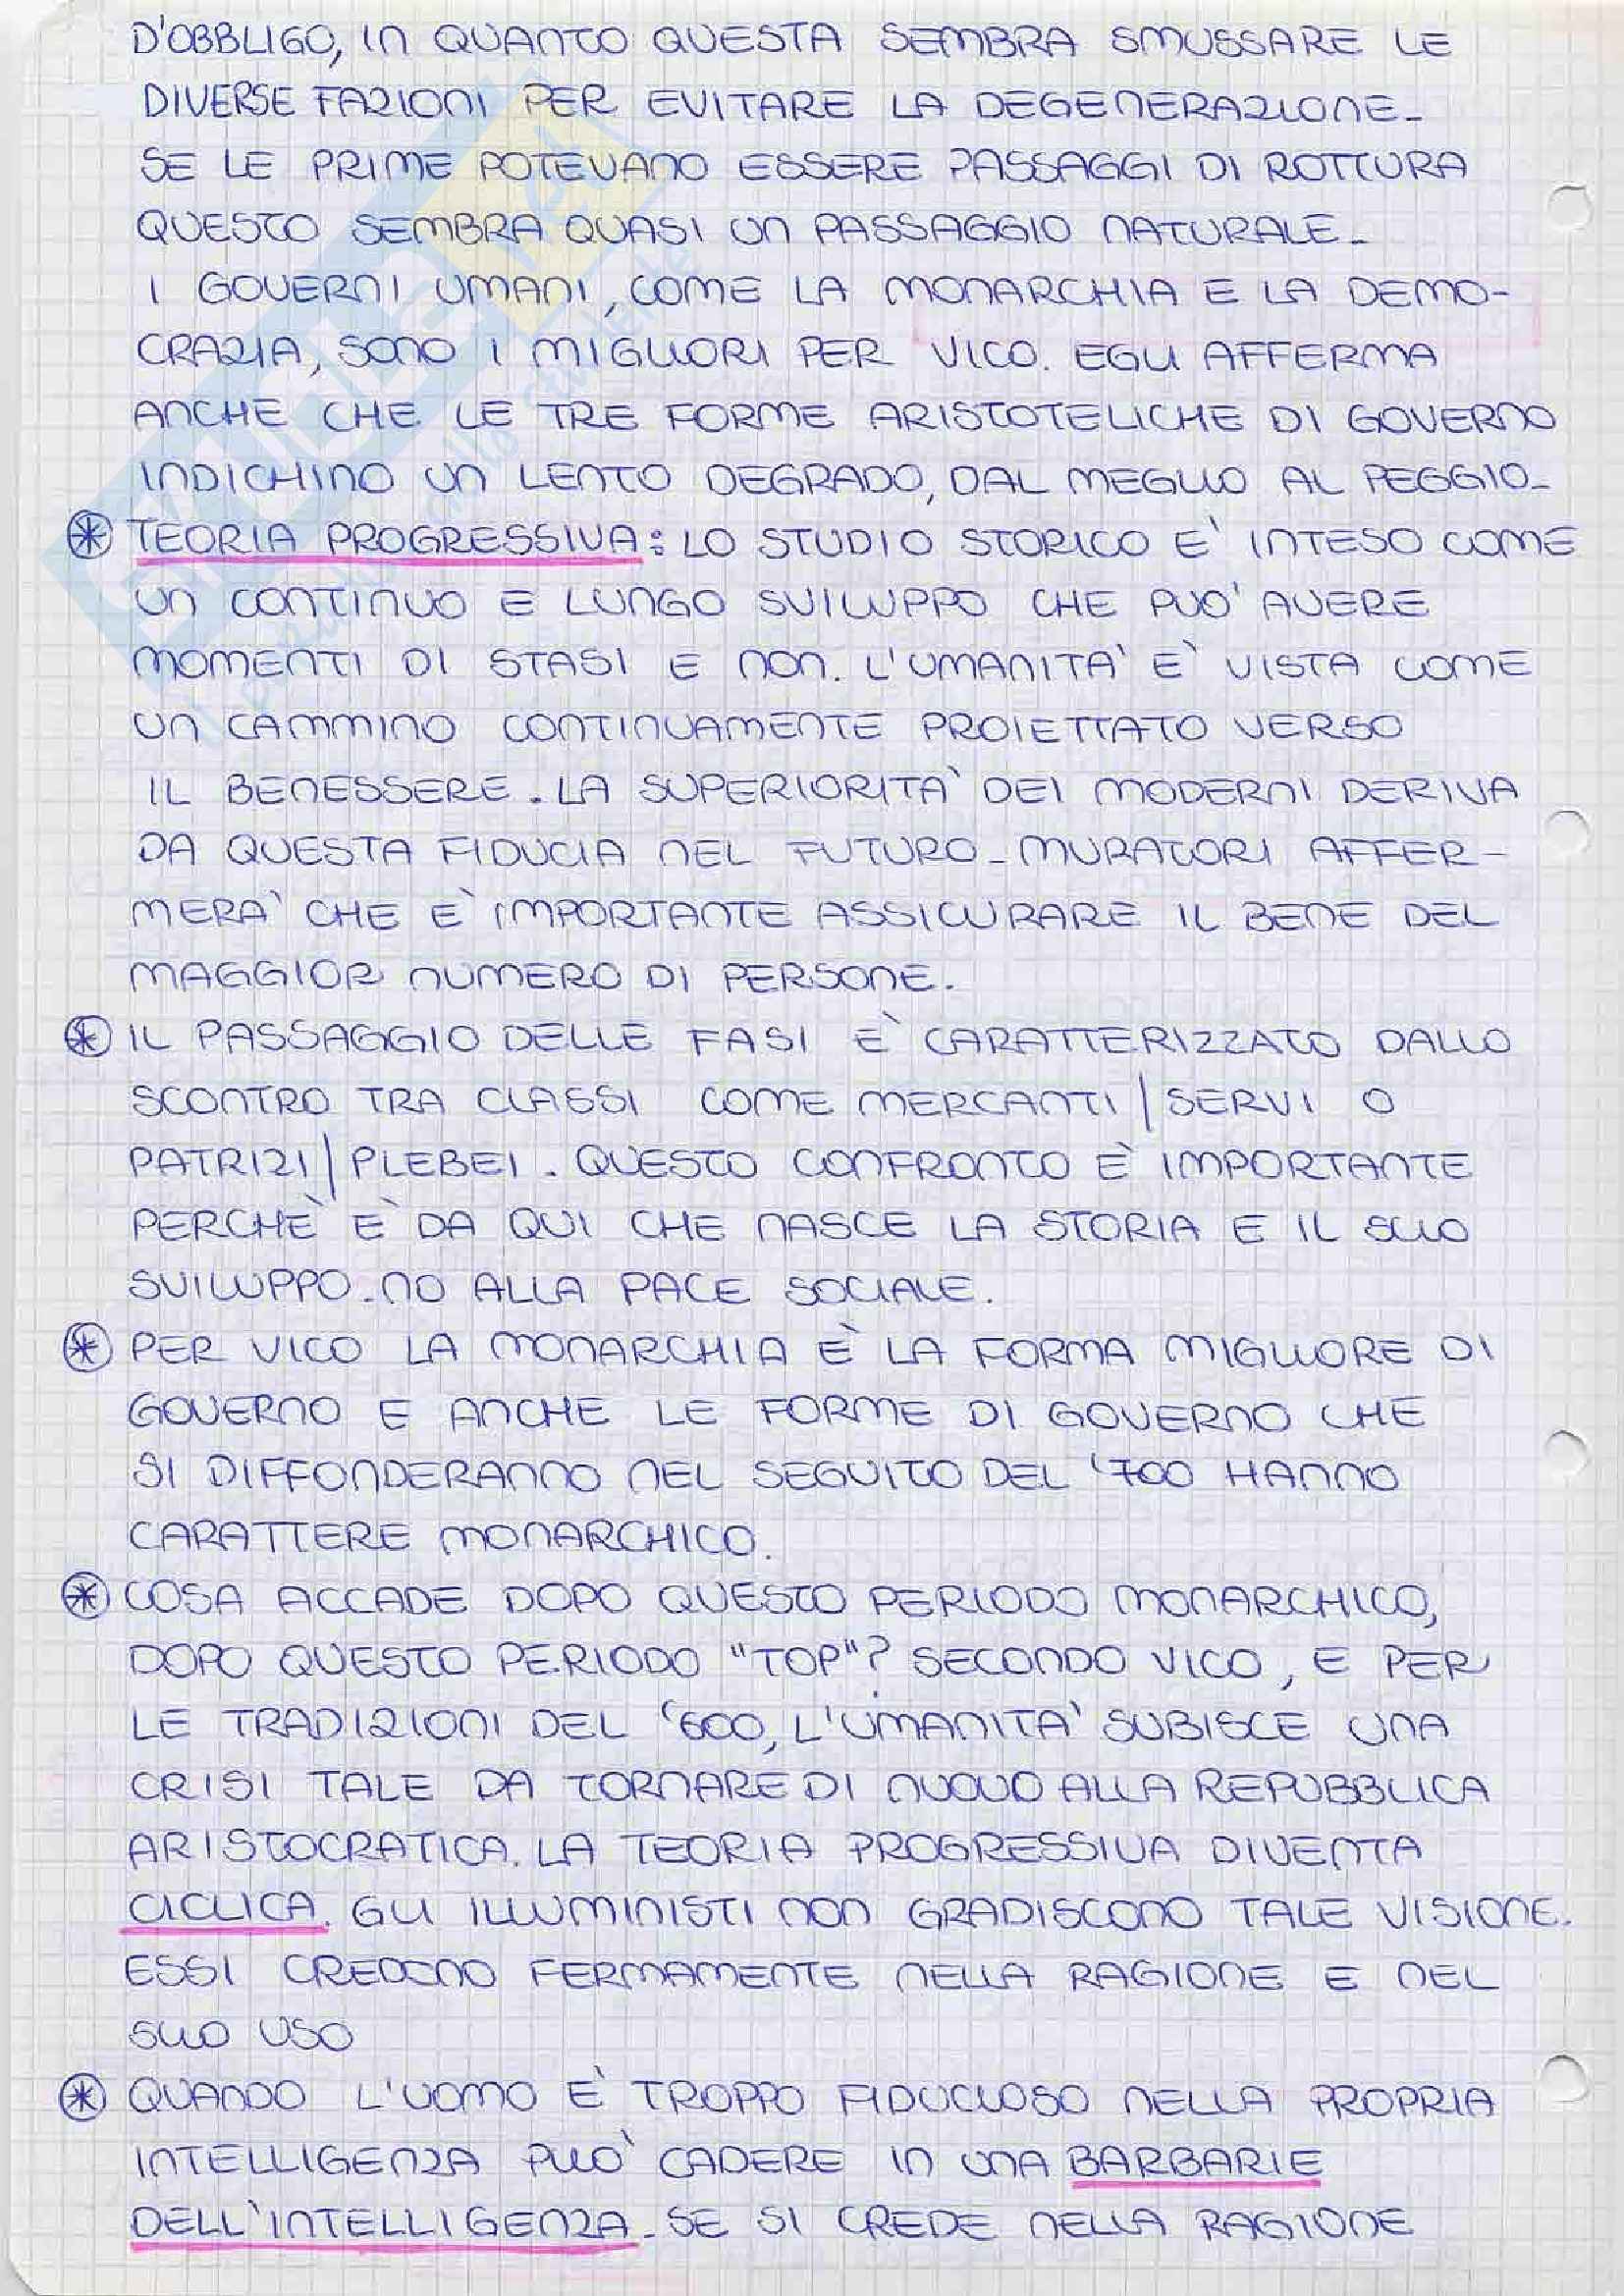 D'OBBLIGO, IN QUANTO QUESTA SEMBRA SMUSSARE LE
DIVERSE FAZIONI PER EVITARE LA DEGENERAZIONE_
SE LE PRIME POTEVANO ESSERE PASSAGGI DI ROTTURA
QUESTO SEMBRA QUASI UN PASSAGGIO NATURALE_
I GOVERNI UMANI, COME LA MONARCHIA E LA DEMO-
CRAZIA, SONO I MIGLIORI PER VICO. EGLI AFFERMA
ANCHE CHE LE TRE FORME ARISTOTELICHE DI GOVERNO
INDICHINO UN LENTO DEGRADO, DAL MEGLIO AL PEGGIO_
* TEORIA PROGRESSIVA: LO STUDIO STORICO E' INTESO COME
UN CONTINUO E LUNGO SVILUPPO CHE PUO' AVERE
MOMENTI DI STASI E NON. L'UMANITA' E' VISTA COME
UN CAMMINO CONTINUAMENTE PROIETTATO VERSO
IL BENESSERE. LA SUPERIORITA' DEI MODERNI DERIVA
DA QUESTA FIDUCIA NEL FUTURO_ MURATORI AFFER-
MERA' CHE E' IMPORTANTE ASSICURARE IL BENE DEL
MAGGIOR NUMERO DI PERSONE.
* IL PASSAGGIO DELLE FASI E' CARATTERIZZATO DALLO
SCONTRO TRA CLASSI COME MERCANTI/SERVI O
PATRIZI/PLEBEI. QUESTO CONFRONTO E' IMPORTANTE
PERCHE' E' DA QUI CHE NASCE LA STORIA E IL SUO
SVILUPPO_ NO ALLA PACE SOCIALE.
* PER VICO LA MONARCHIA E' LA FORMA MIGLIORE DI
GOVERNO E ANCHE LE FORME DI GOVERNO CHE
SI DIFFONDERANNO NEL SEGUITO DEL '700 HANNO
CARATTERE MONARCHICO.
* COSA ACCADE DOPO QUESTO PERIODO MONARCHICO,
DOPO QUESTO PERIODO "TOP"? SECONDO VICO, E PER
LE TRADIZIONI DEL '600, L'UMANITA' SUBISCE UNA
CRISI TALE DA TORNARE DI NUOVO ALLA REPUBBLICA
ARISTOCRATICA. LA TEORIA PROGRESSIVA DIVENTA
CICLICA. GLI ILLUMINISTI NON GRADISCONO TALE VISIONE.
ESSI CREDONO FERMAMENTE NELLA RAGIONE E NEL
SUO USO
* QUANDO L'UOMO E' TROPPO FIDUCIOSO NELLA PROPRIA
INTELLIGENZA PUO' CADERE IN UNA BARBARIE
DELL'INTELLIGENZA_ SE SI CREDE NELLA RAGIONE